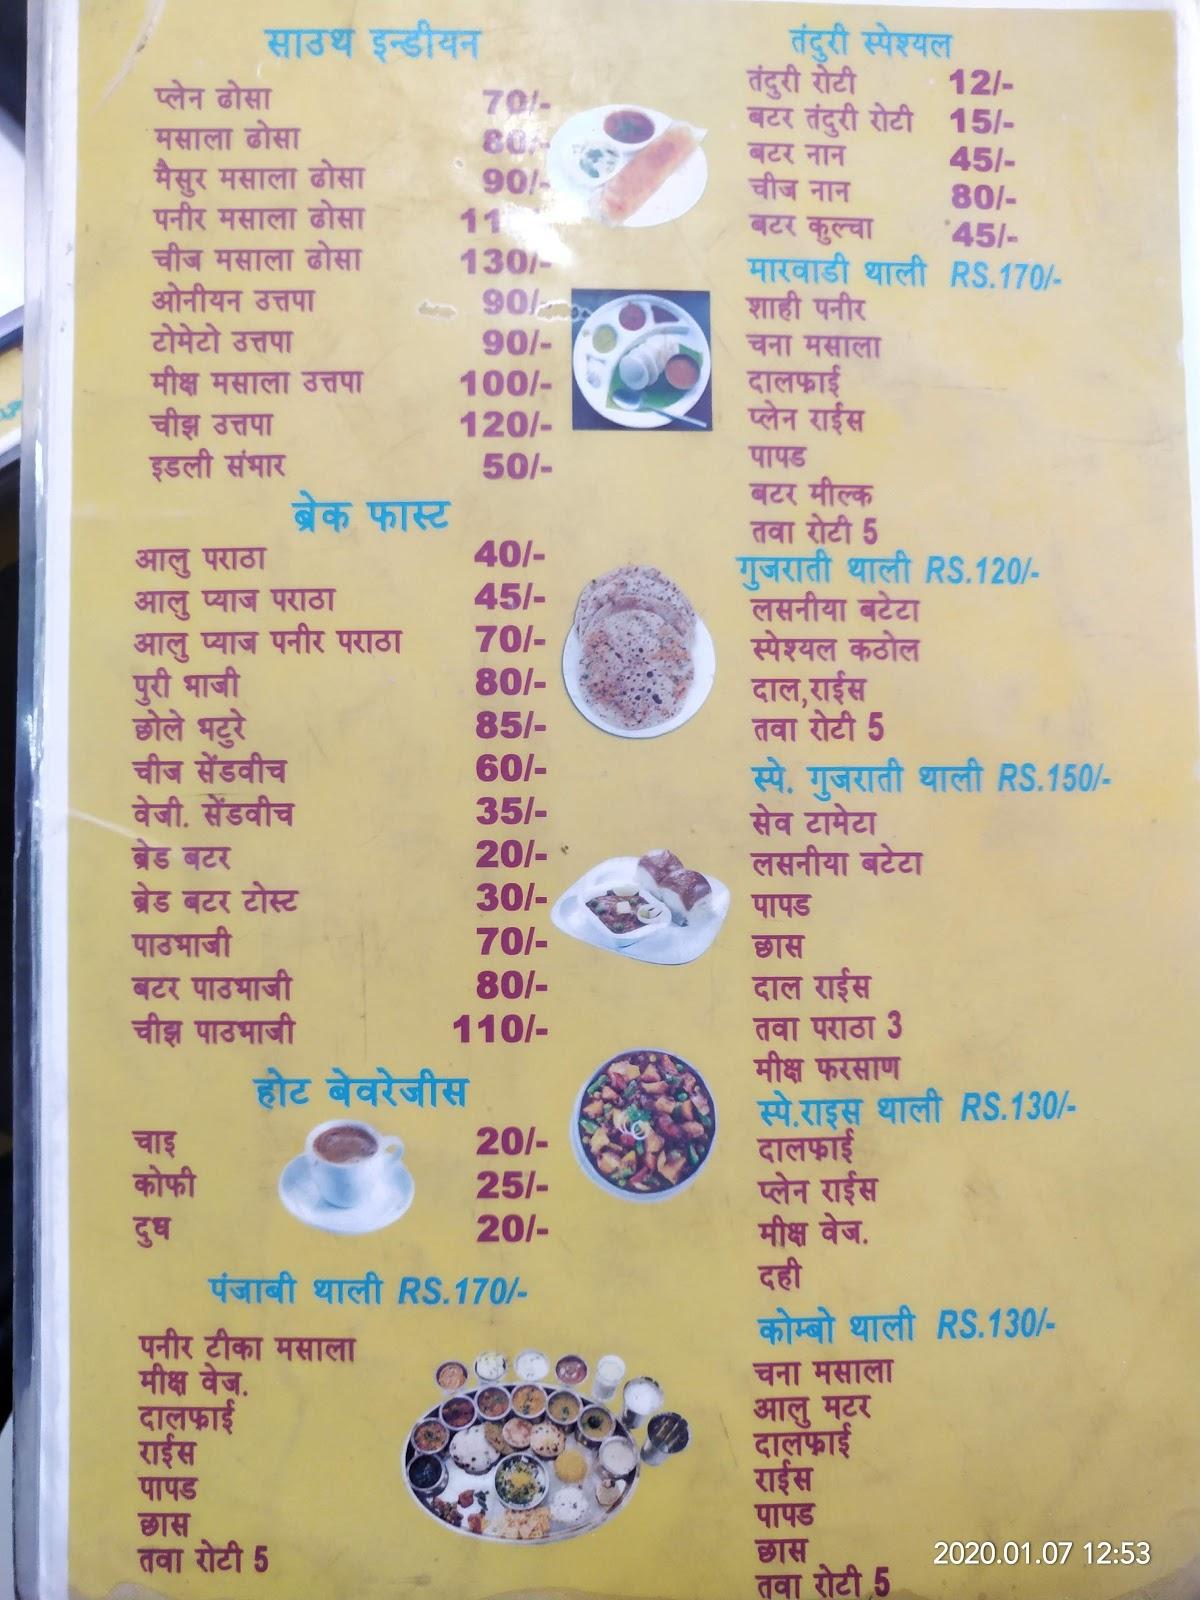 साउथ इन्डीयन
प्लेन ढोसा 70/-
मसाला ढोसा 80/-
मैसुर मसाला ढोसा 90/-
पनीर मसाला ढोसा
चीज मसाला ढोसा 130/-
ओनीयन उत्तपा 90/-
टोमेटो उत्तपा 90/-
मीक्ष मसाला उत्तपा 100/-
चीझ उत्तपा 120/-
इडली संभार 50/-
ब्रेक फास्ट
आलु पराठा 40/-
आलु प्याज पराठा 45/-
आलु प्याज पनीर पराठा 70/-
पुरी भाजी 80/-
छोले भटुरे 85/-
चीज सेंडवीच 60/-
वेजी. सेंडवीच 35/-
ब्रेड बटर 20/-
ब्रेड बटर टोस्ट 30/-
पाउभाजी 70/-
बटर पाउभाजी 80/-
चीझ पाउभाजी 110/-
होट बेवरेजीस
चाइ 20/-
कोफी 25/-
दुध 20/-
पंजाबी थाली RS.170/-
पनीर टीका मसाला
मीक्ष वेज.
दालफ्राई
राईस
पापड
छास
तवा रोटी 5
तंदुरी स्पेश्यल
तंदुरी रोटी 12/-
बटर तंदुरी रोटी 15/-
बटर नान 45/-
चीज नान 80/-
बटर कुल्चा 45/-
मारवाडी थाली RS.170/-
शाही पनीर
चना मसाला
दालफ्राई
प्लेन राईस
पापड
बटर मील्क
तवा रोटी 5
गुजराती थाली RS.120/-
लसनीया बटेटा
स्पेश्यल कठोल
दाल,राईस
तवा रोटी 5
स्पे. गुजराती थाली RS.150/-
सेव टामेटा
लसनीया बटेटा
पापड
छास
दाल राईस
तवा पराठा 3
मीक्ष फरसाण
स्पे.राइस थाली RS.130/-
दालफ्राई
प्लेन राईस
मीक्ष वेज.
दही
कोम्बो थाली RS.130/-
चना मसाला
आलु मटर
दालफ्राई
राईस
पापड
छास
तवा रोटी 5
2020.01.07 12:53